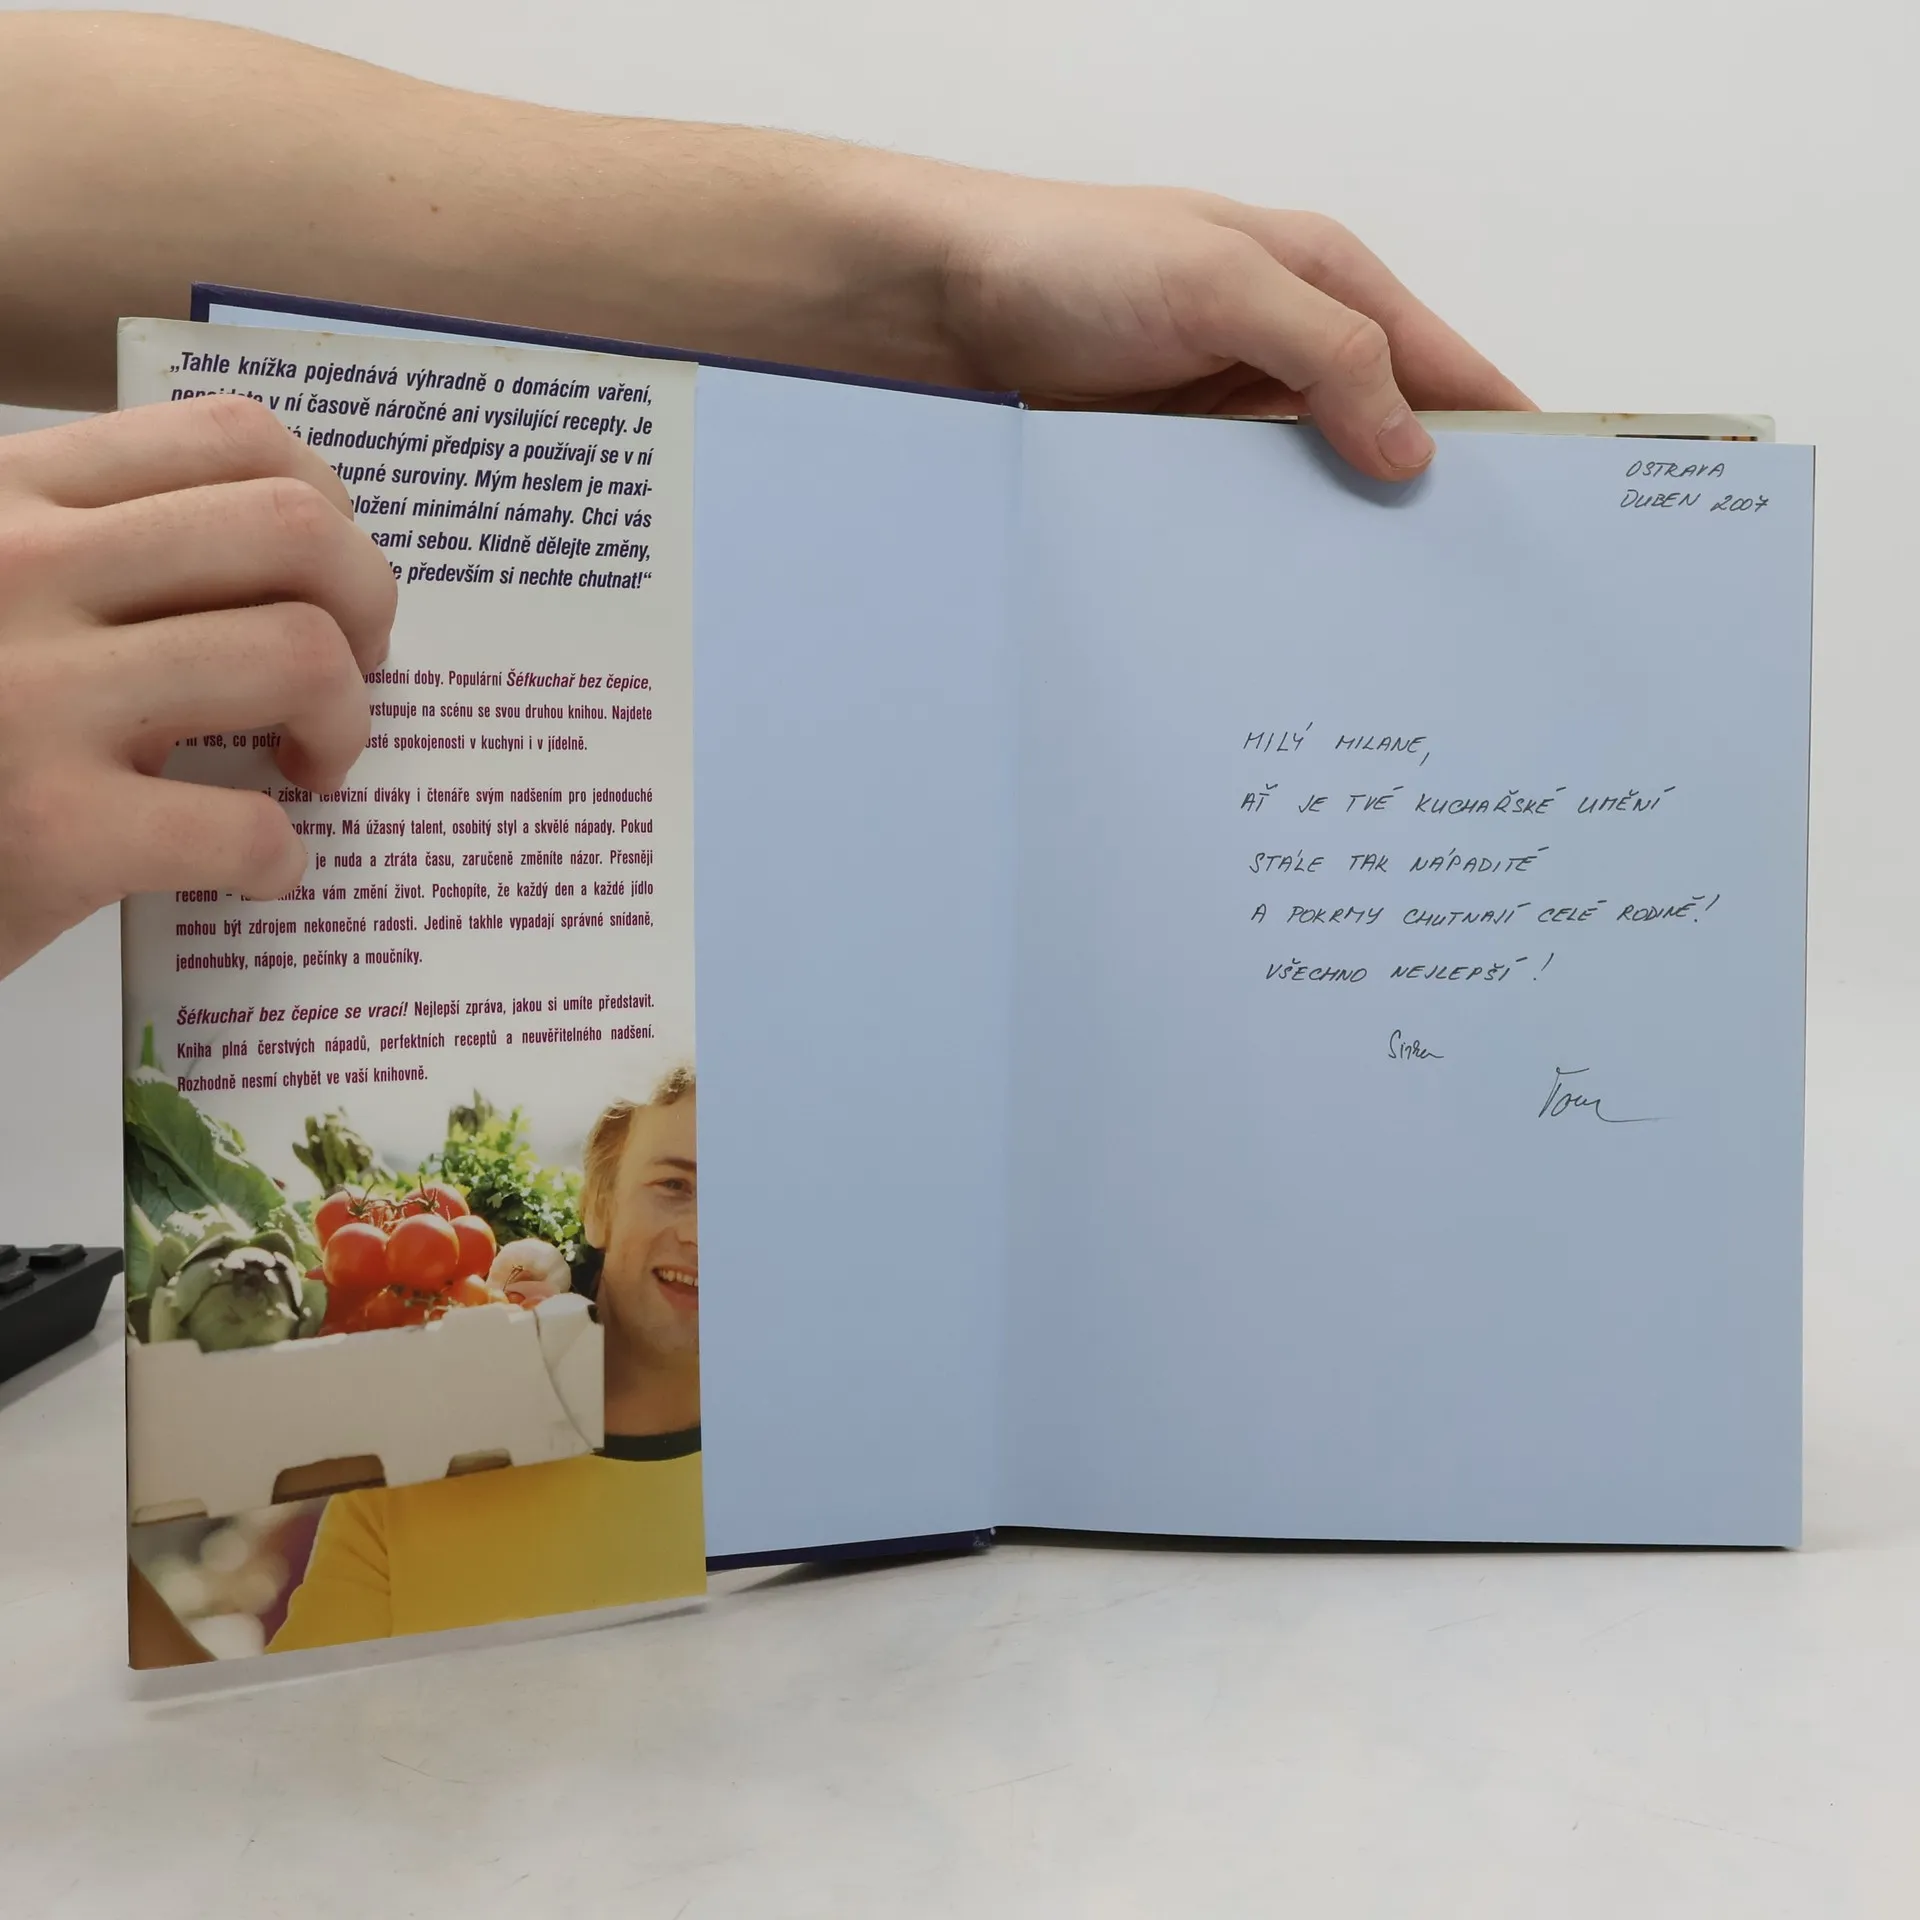 „Tahle knížka pojednává výhradně o domácím vaření,
v ní časově náročné ani vysilující recepty. Je
jednoduchými předpisy a používají se v ní
suroviny. Mým heslem je maxi-
minimální námahy. Chci vás
sami sebou. Klidně dělejte změny,
především si nechte chutnat!“
poslední doby. Populární Šéfkuchař bez čepice,
vstupuje na scénu se svou druhou knihou. Najdete
v ní vše, co spokojenosti v kuchyni i v jídelně.
si získal televizní diváky i čtenáře svým nadšením pro jednoduché
pokrmy. Má úžasný talent, osobitý styl a skvělé nápady. Pokud
je nuda a ztráta času, zaručeně změníte názor. Přesněji
řečeno – knížka vám změní život. Pochopíte, že každý den a každé jídlo
mohou být zdrojem nekonečné radosti. Jedině takhle vypadají správné snídaně,
jednohubky, nápoje, pečínky a moučníky.
Šéfkuchař bez čepice se vrací! Nejlepší zpráva, jakou si umíte představit.
Kniha plná čerstvých nápadů, perfektních receptů a neuvěřitelného nadšení.
Rozhodně nesmí chybět ve vaší knihovně.
OSTRAVA
DUBEN 2007
MILÝ MILANE,
AŤ JE TVÉ KUCHAŘSKÉ UMĚNÍ
STÁLE TAK NÁPADITÉ
A POKRMY CHUTNAJÍ CELÉ RODINĚ!
VŠECHNO NEJLEPŠÍ!